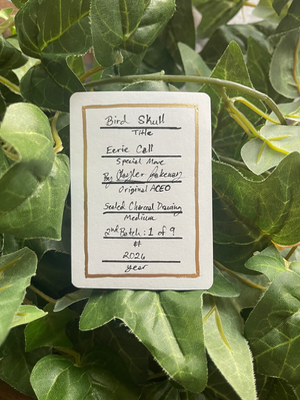 Bird Skull
Title
Eerie Call
Special Move
By
Original ACEO
Sealed Charcoal Drawing
Medium
2nd Batch: 1 of 9
#
2024
year